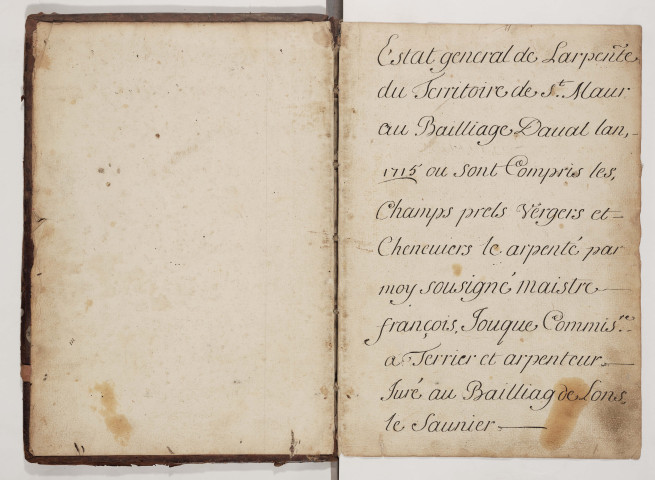 Estat general de Larpente
du Territoire de St. Maur
au Bailliage Daual lan,
1715 ou sont Compris les,
Champs prets Vergers et
Cheneuiers le arpenté par
moy sousigné maistre
françois, Jouque Commisre.
a Terrier et arpenteur
Juré au Bailliag de Lons,
le Saunier